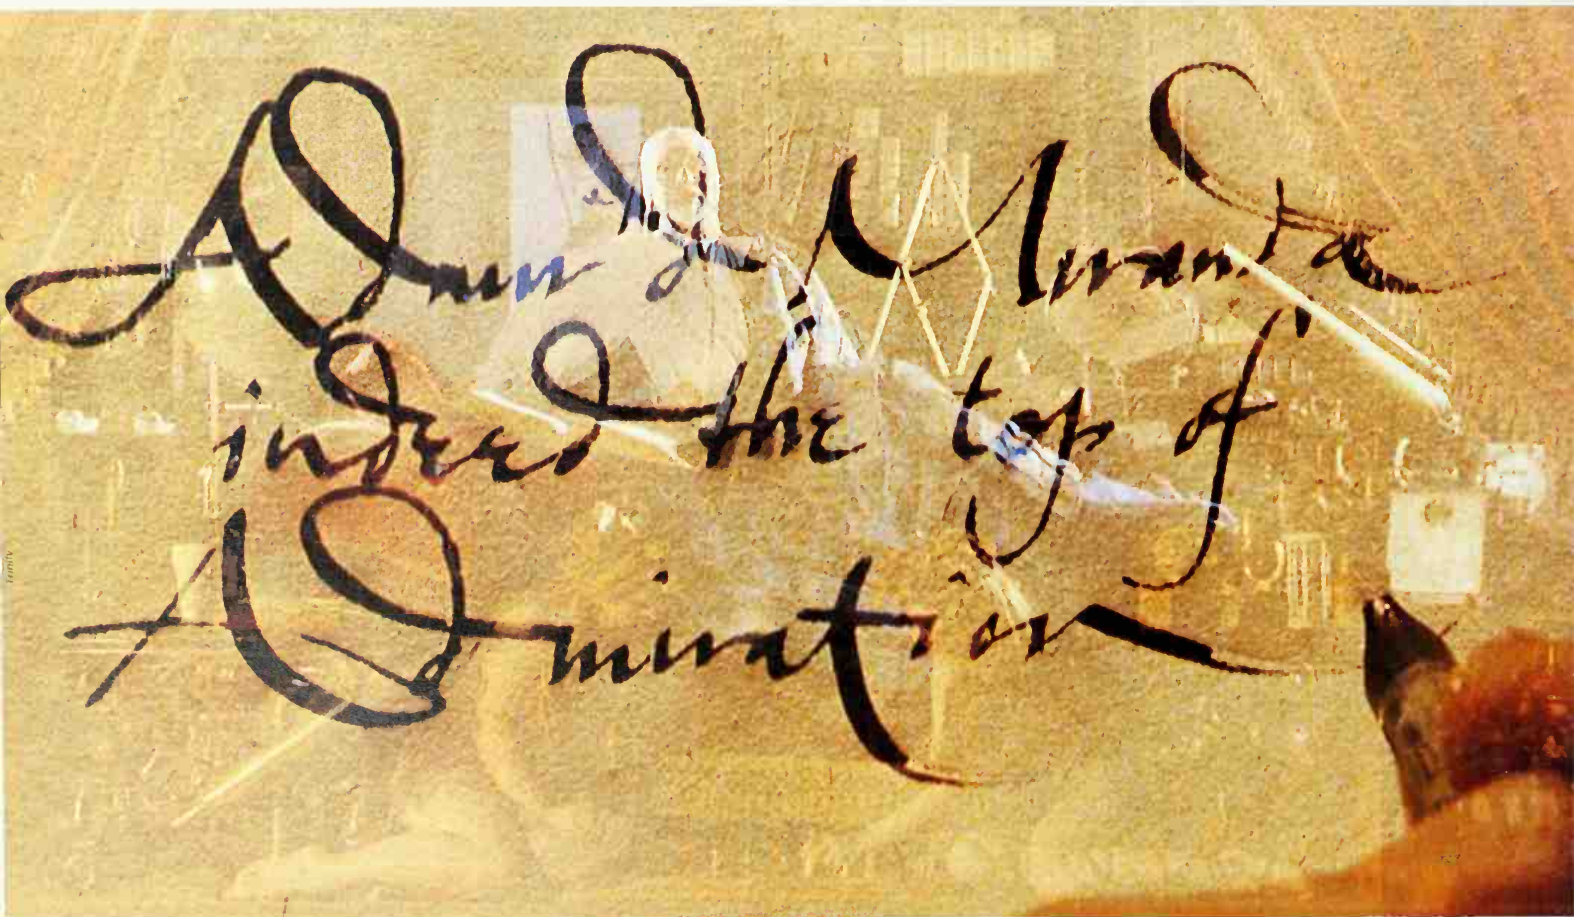 Admir'd Miranda
indeed the top of
Admiration